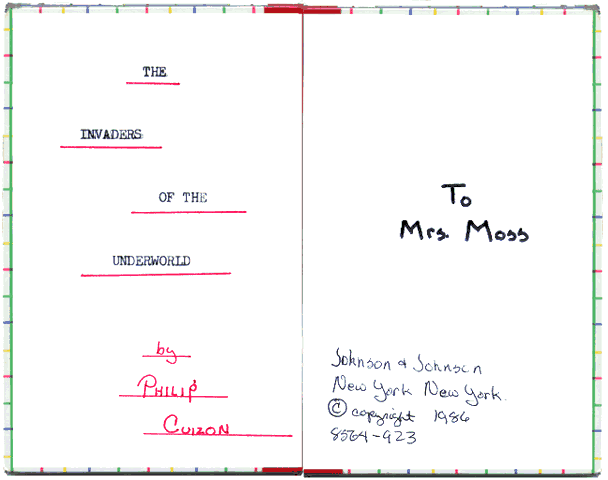 THE
INVADERS
OF THE
UNDERWORLD
by
PHILIP
CUIZON
To
Mrs. Moss
Johnson & Johnson
New York New York.
© copyright 1986
8564-923